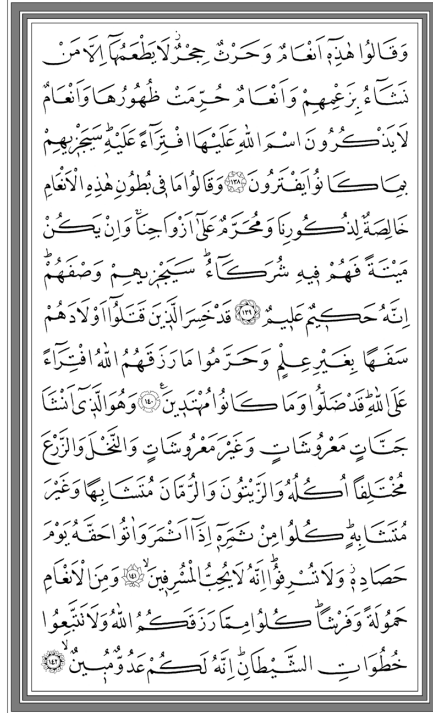 وَقَالُوا هٰذِهٖٓ اَنْعَامٌ وَحَرْثٌ حِجْرٌۘ لَا يَطْعَمُهَٓا اِلَّا مَنْ
نَشَٓاءُ بِزَعْمِهِمْ وَاَنْعَامٌ حُرِّمَتْ ظُهُورُهَا وَاَنْعَامٌ
لَا يَذْكُرُونَ اسْمَ اللّٰهِ عَلَيْهَا افْتِرَٓاءً عَلَيْهِۜ سَيَجْزٖيهِمْ
بِمَا كَانُوا يَفْتَرُونَ ﴿١٣٨﴾ وَقَالُوا مَا فٖي بُطُونِ هٰذِهِ الْاَنْعَامِ
خَالِصَةٌ لِذُكُورِنَا وَمُحَرَّمٌ عَلٰٓى اَزْوَاجِنَاۚ وَاِنْ يَكُنْ
مَيْتَةً فَهُمْ فٖيهِ شُرَكَٓاءُۜ سَيَجْزٖيهِمْ وَصْفَهُمْۜ
اِنَّهُ حَكٖيمٌ عَلٖيمٌ ﴿١٣٩﴾ قَدْ خَسِرَ الَّذٖينَ قَتَلُٓوا اَوْلَادَهُمْ
سَفَهًا بِغَيْرِ عِلْمٍ وَحَرَّمُوا مَا رَزَقَهُمُ اللّٰهُ افْتِرَٓاءً
عَلَى اللّٰهِۜ قَدْ ضَلُّوا وَمَا كَانُوا مُهْتَدٖينَ ﴿١٤٠﴾ وَهُوَ الَّذٖٓي اَنْشَاَ
جَنَّاتٍ مَعْرُوشَاتٍ وَغَيْرَ مَعْرُوشَاتٍ وَالنَّخْلَ وَالزَّرْعَ
مُخْتَلِفًا اُكُلُهُ وَالزَّيْتُونَ وَالرُّمَّانَ مُتَشَابِهًا وَغَيْرَ
مُتَشَابِهٍۜ كُلُوا مِنْ ثَمَرِهٖٓ اِذَٓا اَثْمَرَ وَاٰتُوا حَقَّهُ يَوْمَ
حَصَادِهٖۘ وَلَا تُسْرِفُواۜ اِنَّهُ لَا يُحِبُّ الْمُسْرِفٖينَۙ ﴿١٤١﴾ وَمِنَ الْاَنْعَامِ
حَمُولَةً وَفَرْشًاۜ كُلُوا مِمَّا رَزَقَكُمُ اللّٰهُ وَلَا تَتَّبِعُوا
خُطُوَاتِ الشَّيْطَانِۜ اِنَّهُ لَكُمْ عَدُوٌّ مُبٖينٌۙ ﴿١٤٢﴾